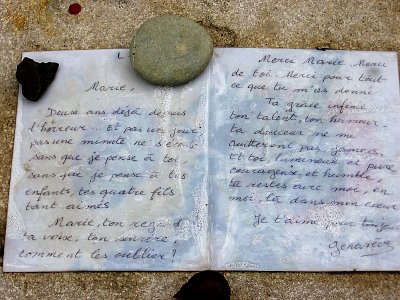 Marie,
Deux ans déjà depuis
l'horreur... Et pas un jour
pas une minute ne s'écoule
sans que je pense à toi,
sans que je pense à tes
enfants, tes quatre fils
tant aimés
Marie, ton regard
ta voix, ton sourire,
comment les oublier?
Merci Marie. Merci
de toi. Merci pour tout
ce que tu m'as donné
Ta grâce infinie,
ton talent, ton humour,
ta douceur ne me
quitteront pas, jamais.
Et toi, lumineuse et pure,
courageuse et humble
tu restes avec moi, en
moi, là dans mon coeur
Je t'aime pour toujours
Geneviève